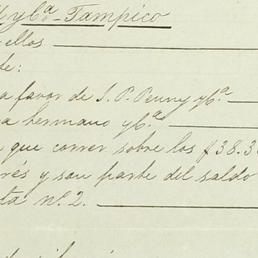 y Cª - Tampico
ellos
te:
a favor de S. P. Penny y Cª
a hermano y Cª
que correr sobre los $ 38.3
rés y son parte del saldo
ta nº. 2.